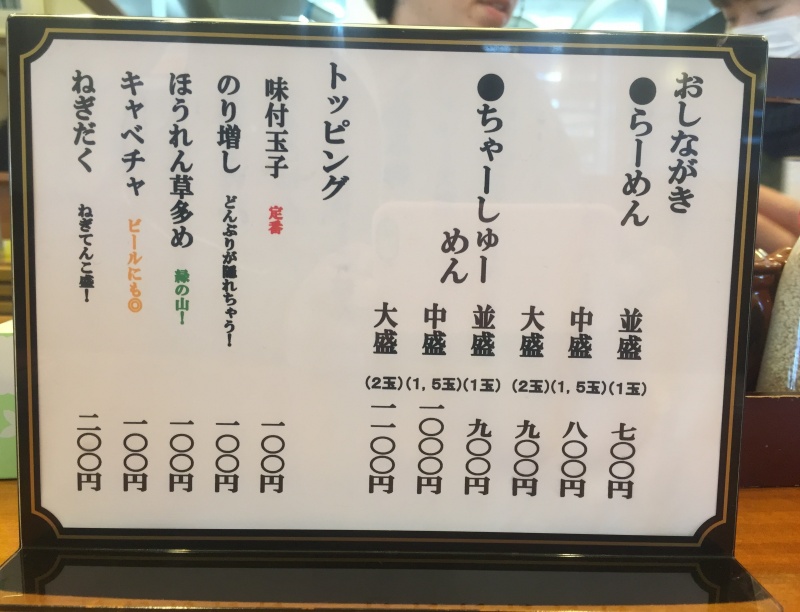 おしながき
●らーめん
並盛 (1玉) 七〇〇円
中盛 (1,5玉) 八〇〇円
大盛 (2玉) 九〇〇円
●ちゃーしゅー
めん
並盛 (1玉) 九〇〇円
中盛 (1,5玉) 一〇〇〇円
大盛 (2玉) 一一〇〇円
トッピング
味付玉子 定番 一〇〇円
のり増し どんぶりが隠れちゃう! 一〇〇円
ほうれん草多め 緑の山! 一〇〇円
キャベチャ ビールにも◎ 一〇〇円
ねぎだく ねぎてんこ盛! 二〇〇円